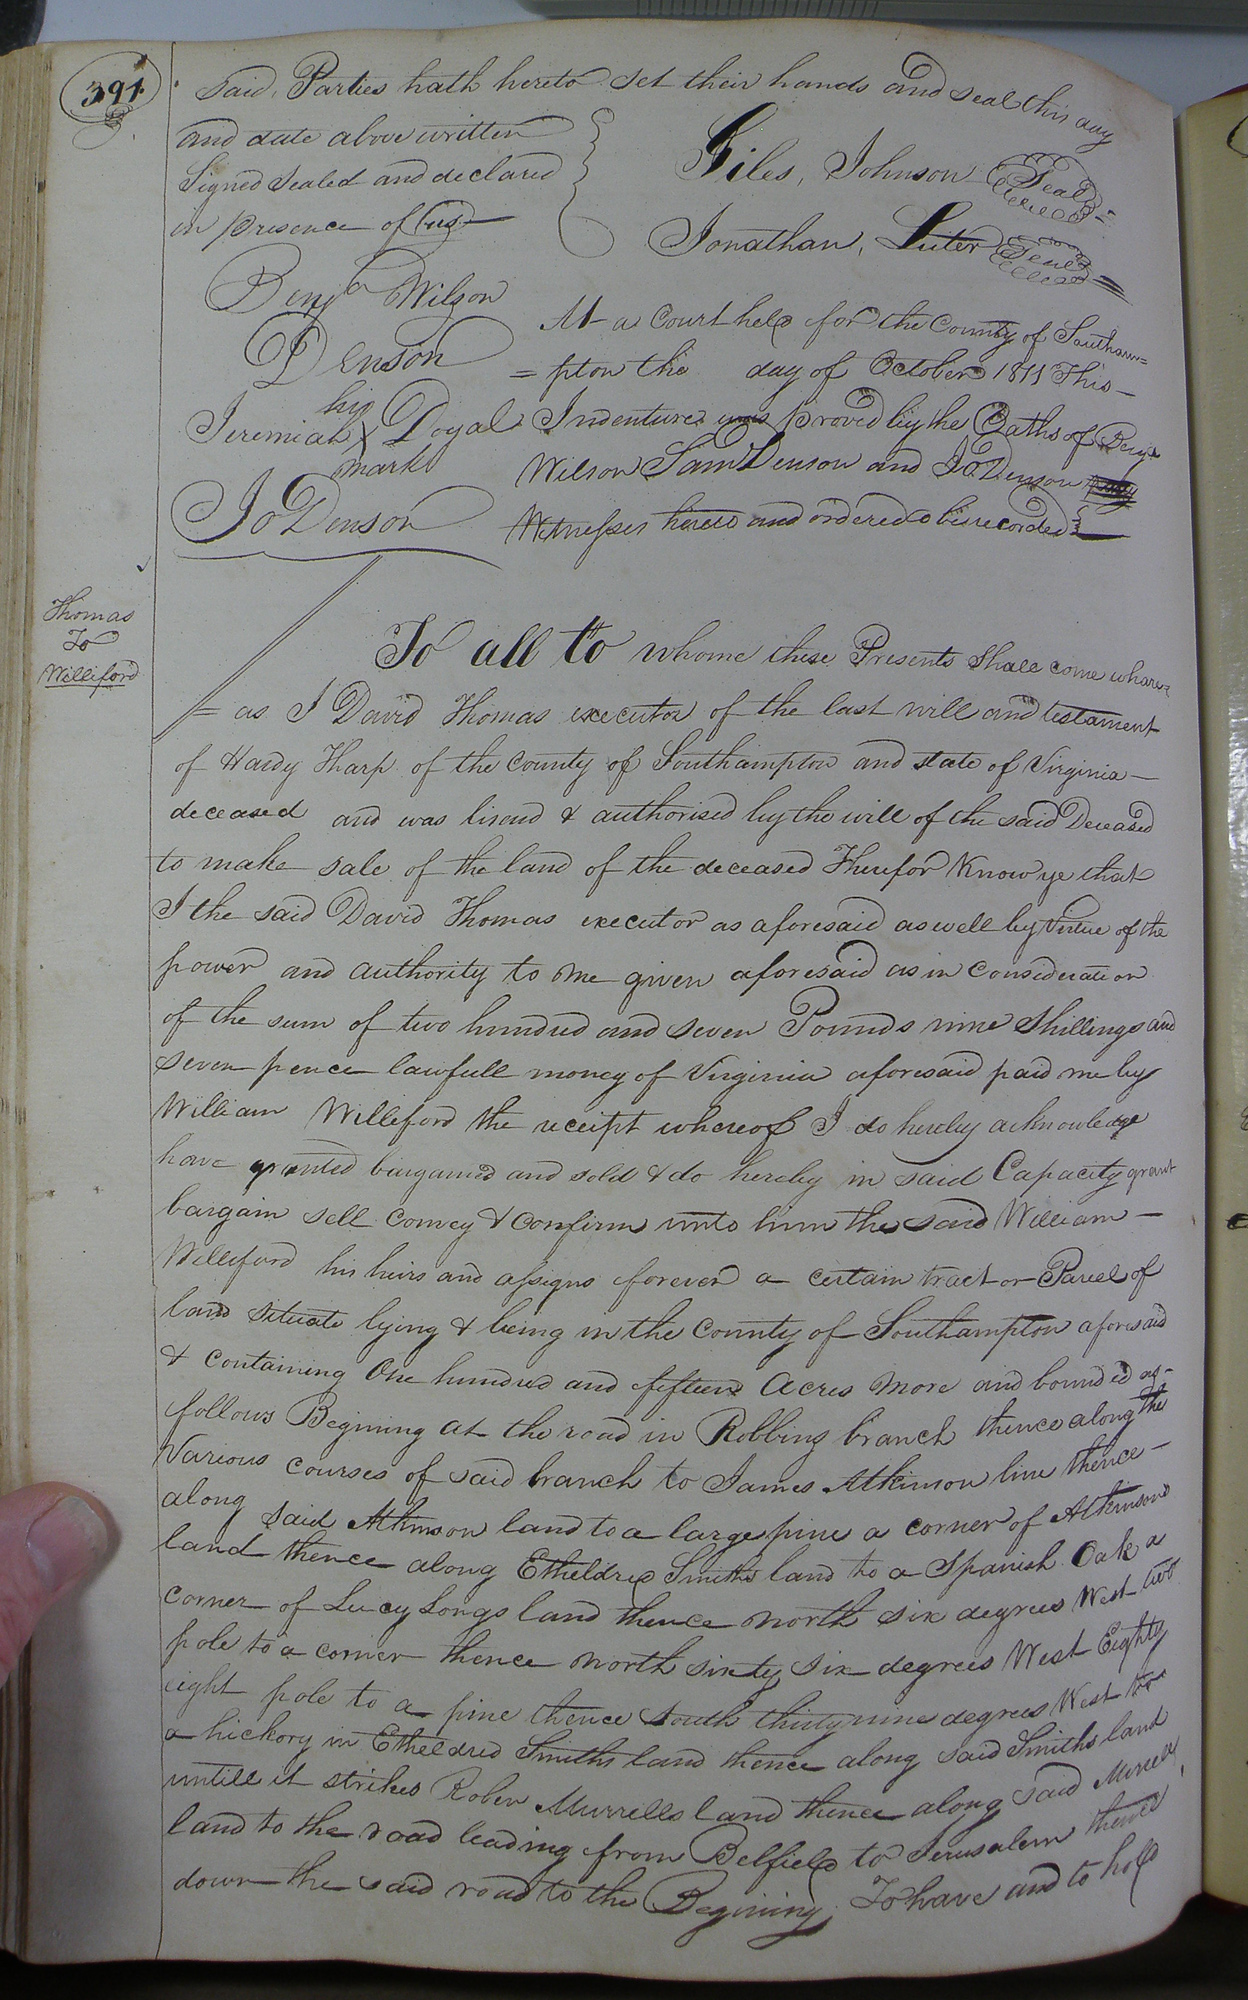 391
said Parties hath hereto set their hands and seal this day
and date above written
Signed Sealed and declared
in presence of (us)
Giles, Johnson Seal
Jonathan, Luter Seal
Benja Wilson
Denson
his
Jeremiah X Doyal
mark
Jo Denson
At a Court held for the County of Southam=
=pton the day of October 1811 This
Indenture was proved by the Oaths of Benja
Wilson Saml Denson and Jo Denson
Witnesses hereto and ordered to be recorded
Thomas
To
Williford
To all to whome these Presents shall come whare=
=as I David Thomas executor of the last will and testament
of Hardy Tharp of the County of Southampton and state of Virginia
deceased and was & authorised by the will of the said Deceased
to make sale of the land of the deceased Therefor Know ye that
I the said David Thomas executor as aforesaid as well by virtue of the
power and authority to me given aforesaid as in consideration
of the sum of two hundred and seven Pounds nine Shillings and
seven pence lawfull money of Virginia aforesaid paid me by
William Williford the receipt whereof I do hereby acknowledge
have granted bargained and sold & do hereby in said Capacity grant
bargain sell convey & confirm unto him the said William
Williford his heirs and assigns forever a certain tract or Parcel of
land situate lying & being in the County of Southampton aforesaid
& containing One hundred and fifteen Acres More and bounded as
follows Begining at the road in Robbins branch thence along the
Various courses of said branch to James Atkinson line thence
along said Atkinson land to a large pine a corner of Atkinsons
land thence along Etheldred Smiths land to a Spanish Oak a
corner of Lucy Longs land thence north six degrees West two
pole to a corner thence north sixty six degrees West Eighty
eight pole to a pine thence South thirty nine degrees West to
a hickory in Etheldred Smiths land thence along said Smiths land
untill it strikes Rober Murrells land thence along said Murrells
land to the road leading from Belfield to Jerusalem thence
down the said road to the Begining, To have and to hold